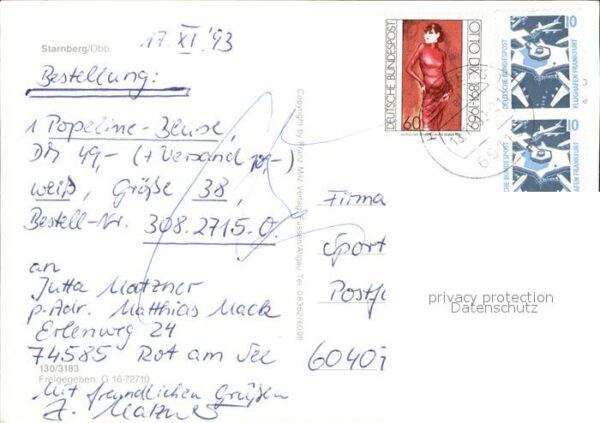 Starnberg/Obb.
17. XI. '93
Bestellung:
1 Popeline-Bluse,
DM 49,- (+ Versand
weiß, Größe 38,
Bestell-Nr. 308.2715.0.
an
Jutta Matzner
p. Adr. Matthias Mack
Erlenweg 24
74585 Rot am See
130/3183
Freigegeben: G 16-72710
Mit freundlichen Grüßen
J. Matzner
Copyright by Franz Milz Verlag, Füssen/Allgäu Tel. 08362/6008
DEUTSCHE BUNDESPOST
60
OTTO DIX 1891-1969
10
DEUTSCHE BUNDESPOST
FLUGHAFEN FRANKFURT
10
Firma
Sport
Postf
6040
privacy protection
Datenschutz